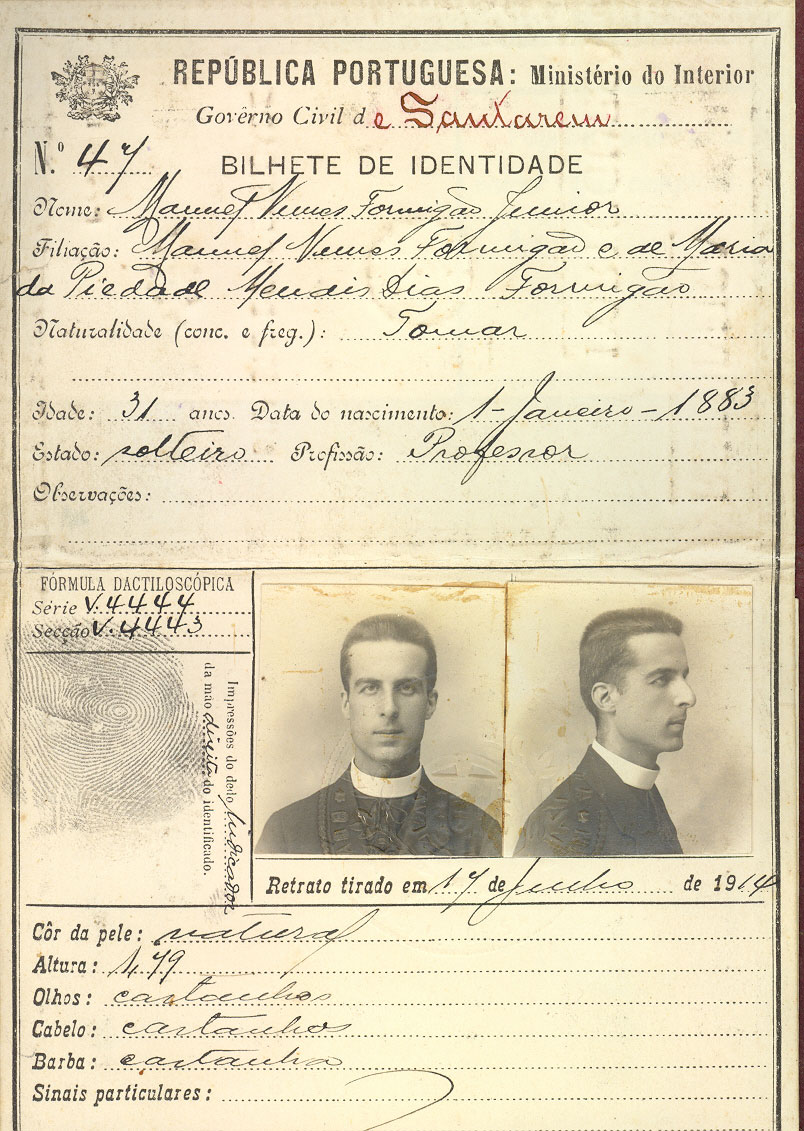 REPÚBLICA PORTUGUESA: Ministério do Interior
Govêrno Civil de Santarem
N.º 47
BILHETE DE IDENTIDADE
Nome: Manuel Nunes Formigão Junior
Filiação: Manuel Nunes Formigão e de Maria
da Piedade Mendes Dias Formigão
Naturalidade (conc. e freg.): Tomar
Idade: 31 anos. Data do nascimento: 1-Janeiro-1883
Estado: solteiro Profissão: Professor
Observações:
FÓRMULA DACTILOSCÓPICA
Série V.4444
Secção V.4443
Impressões do dedo Indicador
da mão direita do identificado.
Retrato tirado em 17 de Junho de 1914
Côr da pele: natural
Altura: 1,79
Olhos: castanhos
Cabelo: castanhos
Barba: castanha
Sinais particulares: